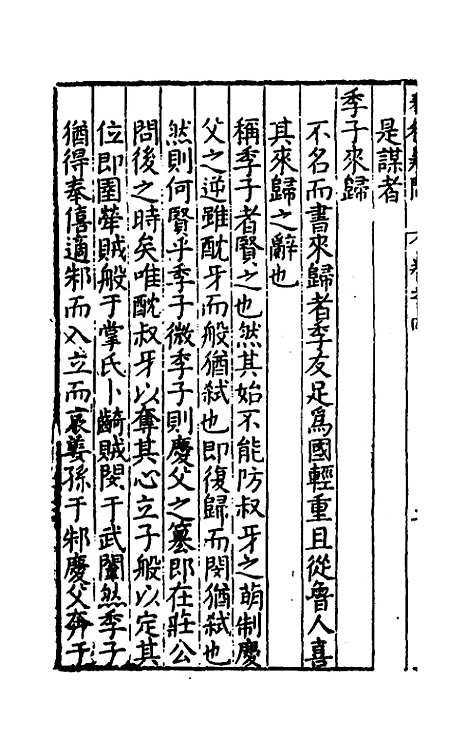 是謀者
季子來歸
不名而書來歸者季友足爲國輕重且從魯人喜
其來歸之辭也
稱季子者賢之也然其始不能防叔牙之萌制慶
父之逆雖酖牙而般猶弑也即復歸而閔猶弑也
然則何賢乎季子微季子則慶父之簒即在莊公
問後之時矣唯酖叔牙以奪其心立子般以定其
位即圉犖賊般于黨氏卜齮賊閔于武闈然季子
猶得奉僖適邾而入立而哀姜孫于邾慶父奔于